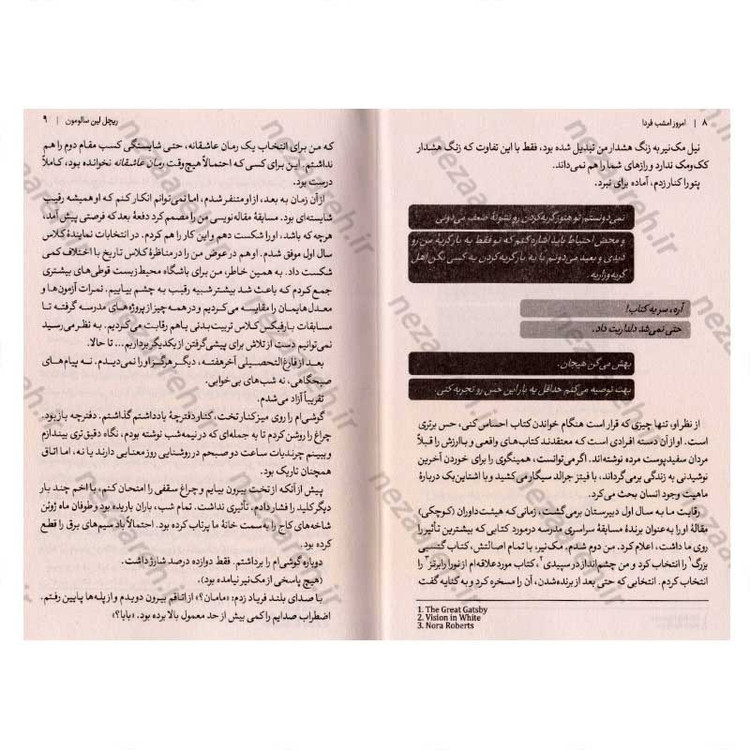 ۸ | امروز امشب فردا
نیل مک‌نیر به زنگ هشدار من تبدیل شده بود، فقط با این تفاوت که زنگ هشدار
کک‌ومک ندارد و رازهای شما را هم نمی‌داند.
پتو را کنار زدم، آماده برای نبرد.
نمی‌دونستم تو هنوز گریه‌کردن رو نشونهٔ ضعف می‌دونی
و محض احتیاط باید اشاره کنم که تو فقط یه بار گریهٔ من رو
دیدی و بعید می‌دونم با یه بار گریه‌کردن به کسی بگن اهل
گریه‌وزاریه.
آره، سر یه کتاب!
حتی نمی‌شد دلداریت داد.
بهش می‌گن هیجان.
بهت توصیه می‌کنم حداقل یه بار این حس رو تجربه کنی.
از نظر او، تنها چیزی که قرار است هنگام خواندن کتاب احساس کنی، حس برتری
است. او از آن دسته افرادی است که معتقدند کتاب‌های واقعی و باارزش را قبلاً
مردان سفیدپوست مرده نوشته‌اند. اگر می‌توانست، همینگوی را برای خوردن آخرین
نوشیدنی به زندگی برمی‌گرداند، با فیتز جرالد سیگار می‌کشید و با اشتاین‌بک دربارهٔ
ماهیت وجود انسان بحث می‌کرد.
رقابت ما به سال اول دبیرستان برمی‌گشت، زمانی‌که هیئت‌داوران (کوچکی)
مقالهٔ او را به‌عنوان برندهٔ مسابقهٔ سراسری مدرسه درمورد کتابی که بیشترین تأثیر را
روی ما داشت، اعلام کرد. من دوم شدم. مک‌نیر، با تمام اصالتش، کتاب گتسبی
بزرگ¹ را انتخاب کرد و من چشم‌انداز در سپیدی²، کتاب موردعلاقه‌ام از نورا رابرتز³ را
انتخاب کردم. انتخابی که حتی بعد از برنده‌شدن، آن را مسخره کرد و به کنایه گفت
1. The Great Gatsby
2. Vision in White
3. Nora Roberts
ریچل لین سالومون | ۹
که من برای انتخاب یک رمان عاشقانه، حتی شایستگی کسب مقام دوم را هم
نداشتم. این برای کسی که احتمالاً هیچ‌وقت رمان عاشقانه نخوانده بود، کاملاً
درست بود.
از آن زمان به بعد، از او متنفر شدم، اما نمی‌توانم انکار کنم که او همیشه رقیب
شایسته‌ای بود. مسابقهٔ مقاله‌نویسی من را مصمم کرد دفعهٔ بعد که فرصتی پیش آمد،
هرچه که باشد، او را شکست دهم و این کار را هم کردم. در انتخابات نمایندهٔ کلاس
سال اول موفق شدم. او هم در عوض من را در مناظرهٔ کلاس تاریخ با اختلاف کمی
شکست داد. به همین خاطر، من برای باشگاه محیط‌زیست قوطی‌های بیشتری
جمع کردم که باعث شد بیشتر شبیه رقیب به چشم بیاییم. نمرات آزمون‌ها و
معدل‌هایمان را مقایسه می‌کردیم و در همه چیز از پروژه‌های مدرسه گرفته تا
مسابقات بارفیکس کلاس تربیت‌بدنی با هم رقابت می‌کردیم. به نظر می‌رسید
نمی‌توانیم دست از تلاش برای پیشی‌گرفتن از یکدیگر برداریم... تا حالا.
بعد از فارغ‌التحصیلی آخر هفته، دیگر هرگز او را نمی‌دیدم. نه پیام‌های
صبحگاهی، نه شب‌های بی‌خوابی.
تقریباً آزاد می‌شدم.
گوشی‌ام را روی میز کنار تخت، کنار دفترچهٔ یادداشتم گذاشتم. دفترچه باز بود.
چراغ را روشن کردم تا به جمله‌ای که در نیمه‌شب نوشته بودم، نگاه دقیق‌تری بیندازم
و ببینم چرندیات ساعت دو صبحم در روشنایی روز معنایی دارند یا نه، اما اتاق
همچنان تاریک بود.
پیش از آنکه از تخت بیرون بیایم و چراغ سقفی را امتحان کنم، با اخم چند بار
دیگر کلید را فشار دادم. تأثیری نداشت. تمام شب، باران باریده بود و طوفان ماه ژوئن
شاخه‌های کاج را به‌سمت خانهٔ ما پرتاب کرده بود. احتمالاً باد سیم‌های برق را قطع
کرده بود.
دوباره گوشی‌ام را برداشتم. فقط دوازده درصد شارژ داشت.
(هیچ پاسخی از مک‌نیر نیامده بود).
با صدای بلند فریاد زدم: «مامان؟» از اتاقم بیرون دویدم و از پله‌ها پایین رفتم.
اضطراب صدایم را کمی بیش از حد معمول بالا برده بود. «بابا؟»
nezaareh.ir